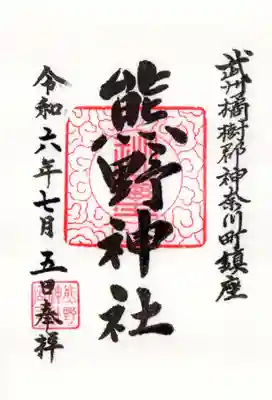 武州橘樹郡神奈川町鎮座
熊野神社
令和六年七月五日奉拝